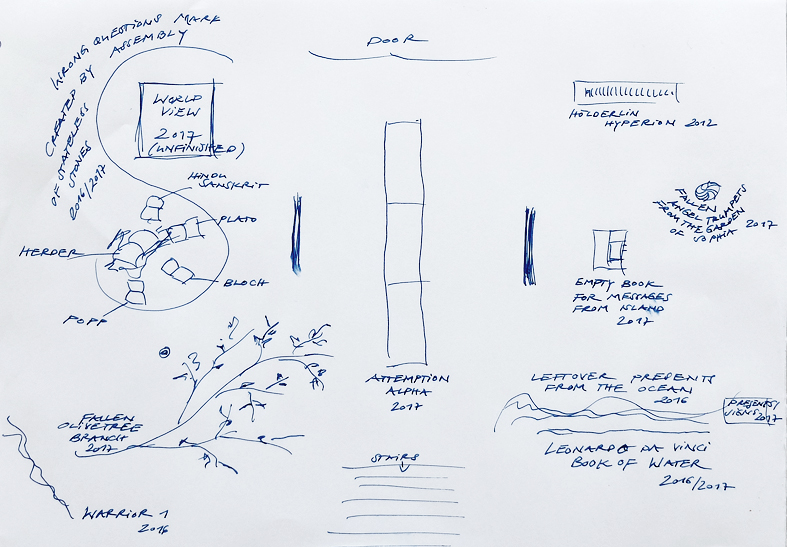 WRONG QUESTIONS MARK
CREATED BY ASSEMBLY
OF STATELESS
STONES
2016/2017
DOOR
WORLD
VIEW
2017
(UNFINISHED)
HÖLDERLIN
HYPERION 2012
HINDU
SANSKRIT
PLATO
HERDER
BLOCH
POPP
FALLEN
ANGEL TRUMPETS
FROM THE GARDEN
OF SOPHIA 2017
EMPTY BOOK
FOR MESSAGES
FROM ISLAND
2017
ATTEMPTION
ALPHA
2017
LEFTOVER PRESENTS
FROM THE OCEAN
2016
PRESENTS/
VIEWS
2017
LEONARDO DA VINCI
BOOK OF WATER
2016/2017
FALLEN
OLIVETREE
BRANCH
2017
STAIRS
WARRIOR 1
2016